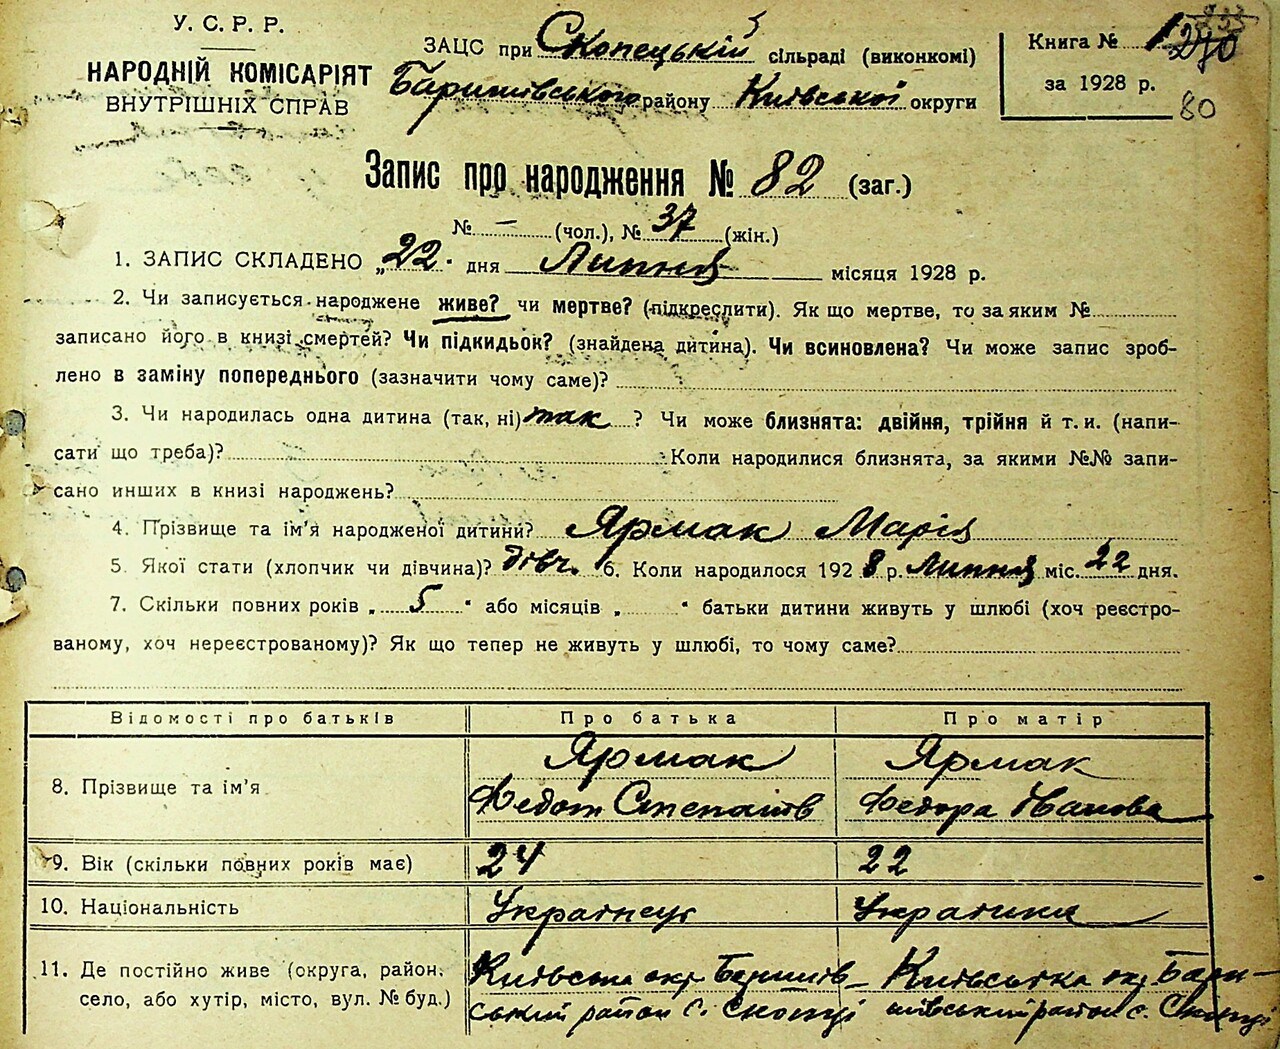 У. С. Р. Р.
НАРОДНІЙ КОМІСАРІЯТ
ВНУТРІШНІХ СПРАВ
ЗАЦС при Скопецькій сільраді (виконкомі)
Баришівського району Київської округи
Книга № 1
за 1928 р.
80
Запис про народження № 82 (заг.)
№ – (чол.), № 37 (жін.)
1. ЗАПИС СКЛАДЕНО „22" дня Липня місяця 1928 р.
2. Чи записується народжене живе? чи мертве? (підкреслити). Як що мертве, то за яким №
записано його в книзі смертей? Чи підкидьок? (знайдена дитина). Чи всиновлена? Чи може запис зроб-
лено в заміну попереднього (зазначити чому саме)?
3. Чи народилась одна дитина (так, ні) так ? Чи може близнята: двійня, трійня й т. и. (напи-
сати що треба)? Коли народилися близнята, за якими №№ запи-
сано инших в книзі народжень?
4. Прізвище та ім'я народженої дитини? Ярмак Марія
5. Якої стати (хлопчик чи дівчина)? дівч. 6. Коли народилося 1928 р. Липня міс. 22 дня.
7. Скільки повних років „ 5 " або місяців „ " батьки дитини живуть у шлюбі (хоч реєстро-
ваному, хоч нереєстрованому)? Як що тепер не живуть у шлюбі, то чому саме?
Відомості про батьків Про батька Про матір
Ярмак Ярмак
8. Прізвище та ім'я Федот Степанів Федора Іванова
9. Вік (скільки повних років має) 24 22
10. Національність Українець Українка
11. Де постійно живе (округа, район, Київська окр Баришів- Київська окр Бари-
село, або хутір, місто, вул. № буд.) ський район с. Скопці шівський район с. Скопці